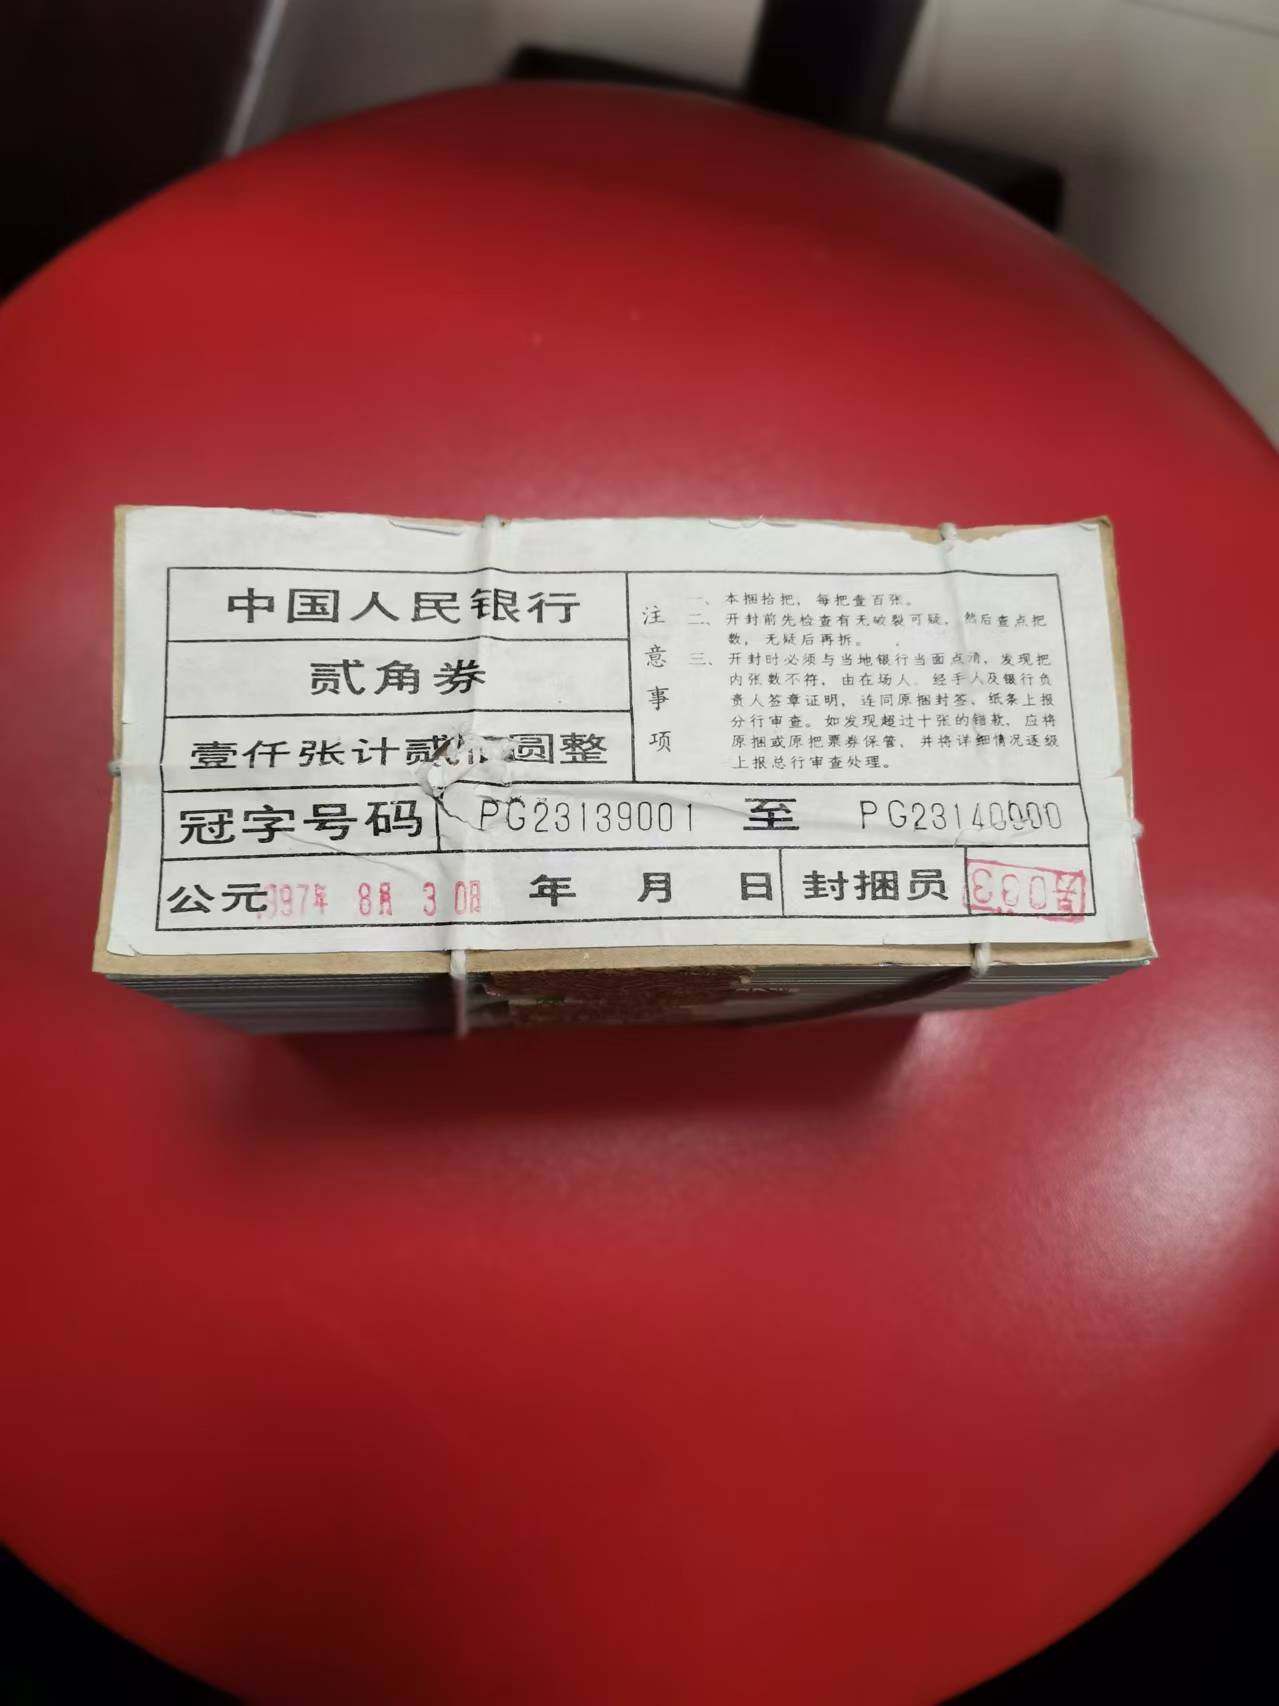 中国人民银行
贰角券
壹仟张计贰佰圆整
注意事项
一、本捆拾把，每把壹百张。
二、开封前先检查有无破裂可疑，然后查点把
数，无疑后再拆。
三、开封时必须与当地银行当面点清，发现把
内张数不符，由在场人、经手人及银行负
责人签章证明，连同原捆封签、纸条上报
分行审查。如发现超过十张的错款，应将
原捆或原把票券保管，并将详细情况逐级
上报总行审查处理。
冠字号码 PG23139001 至 PG23140000
公元 1997年 8月 30日 年 月 日 封捆员